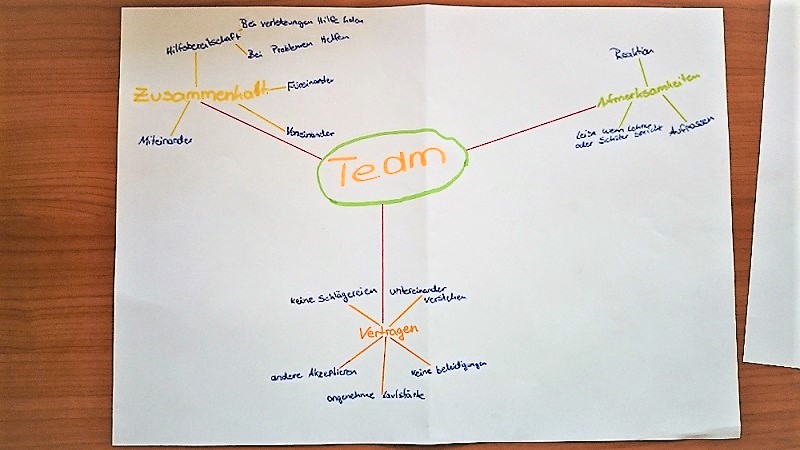 Bei verletzungen Hilfe holen
Hilfsbereitschaft
Bei Problemen Helfen
Zusammenhalt
Füreinander
Voneinander
Miteinander
Team
Reaktion
Aufmerksamkeiten
Leise wenn Lehrer
oder Schüler spricht
Aufpassen
keine Schlägereien
untereinander
verstehen
Vertragen
andere Akzeptieren
keine beleidigungen
angenehme Lautstärke